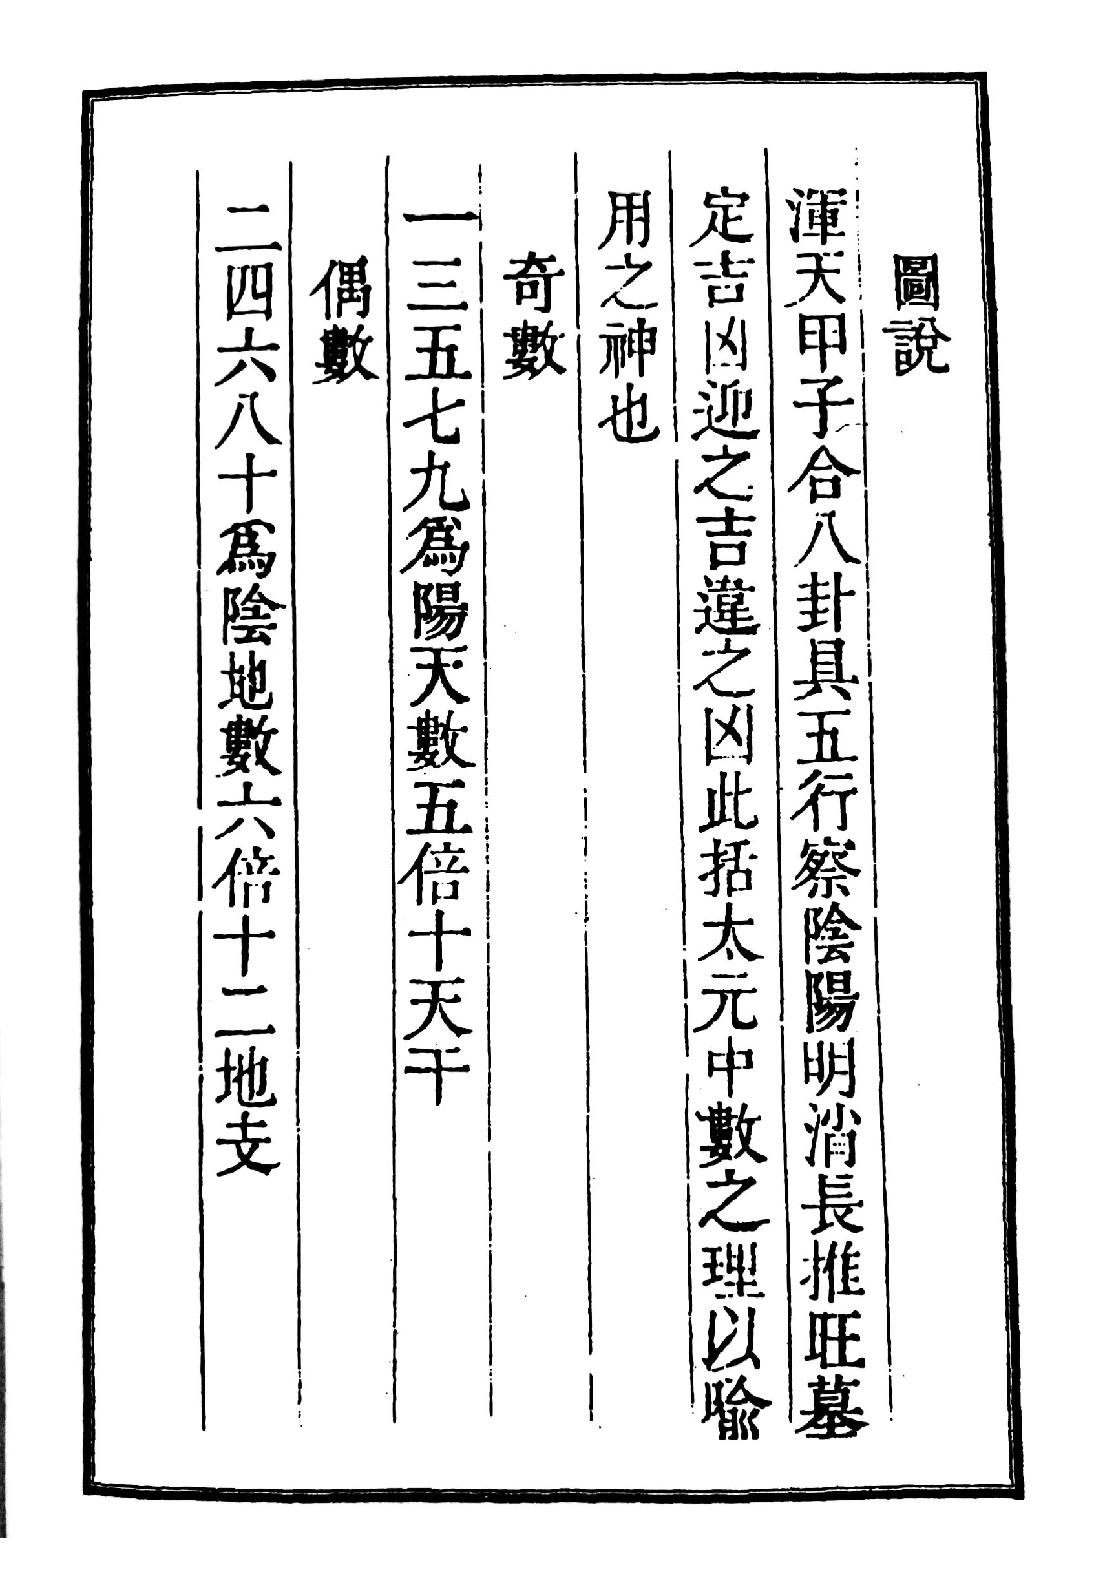 圖說
渾天甲子合八卦具五行察陰陽明消長推旺墓
定吉凶迎之吉違之凶此括太元中數之理以喻
用之神也
奇數
一三五七九爲陽天數五倍十天干
偶數
二四六八十爲陰地數六倍十二地支